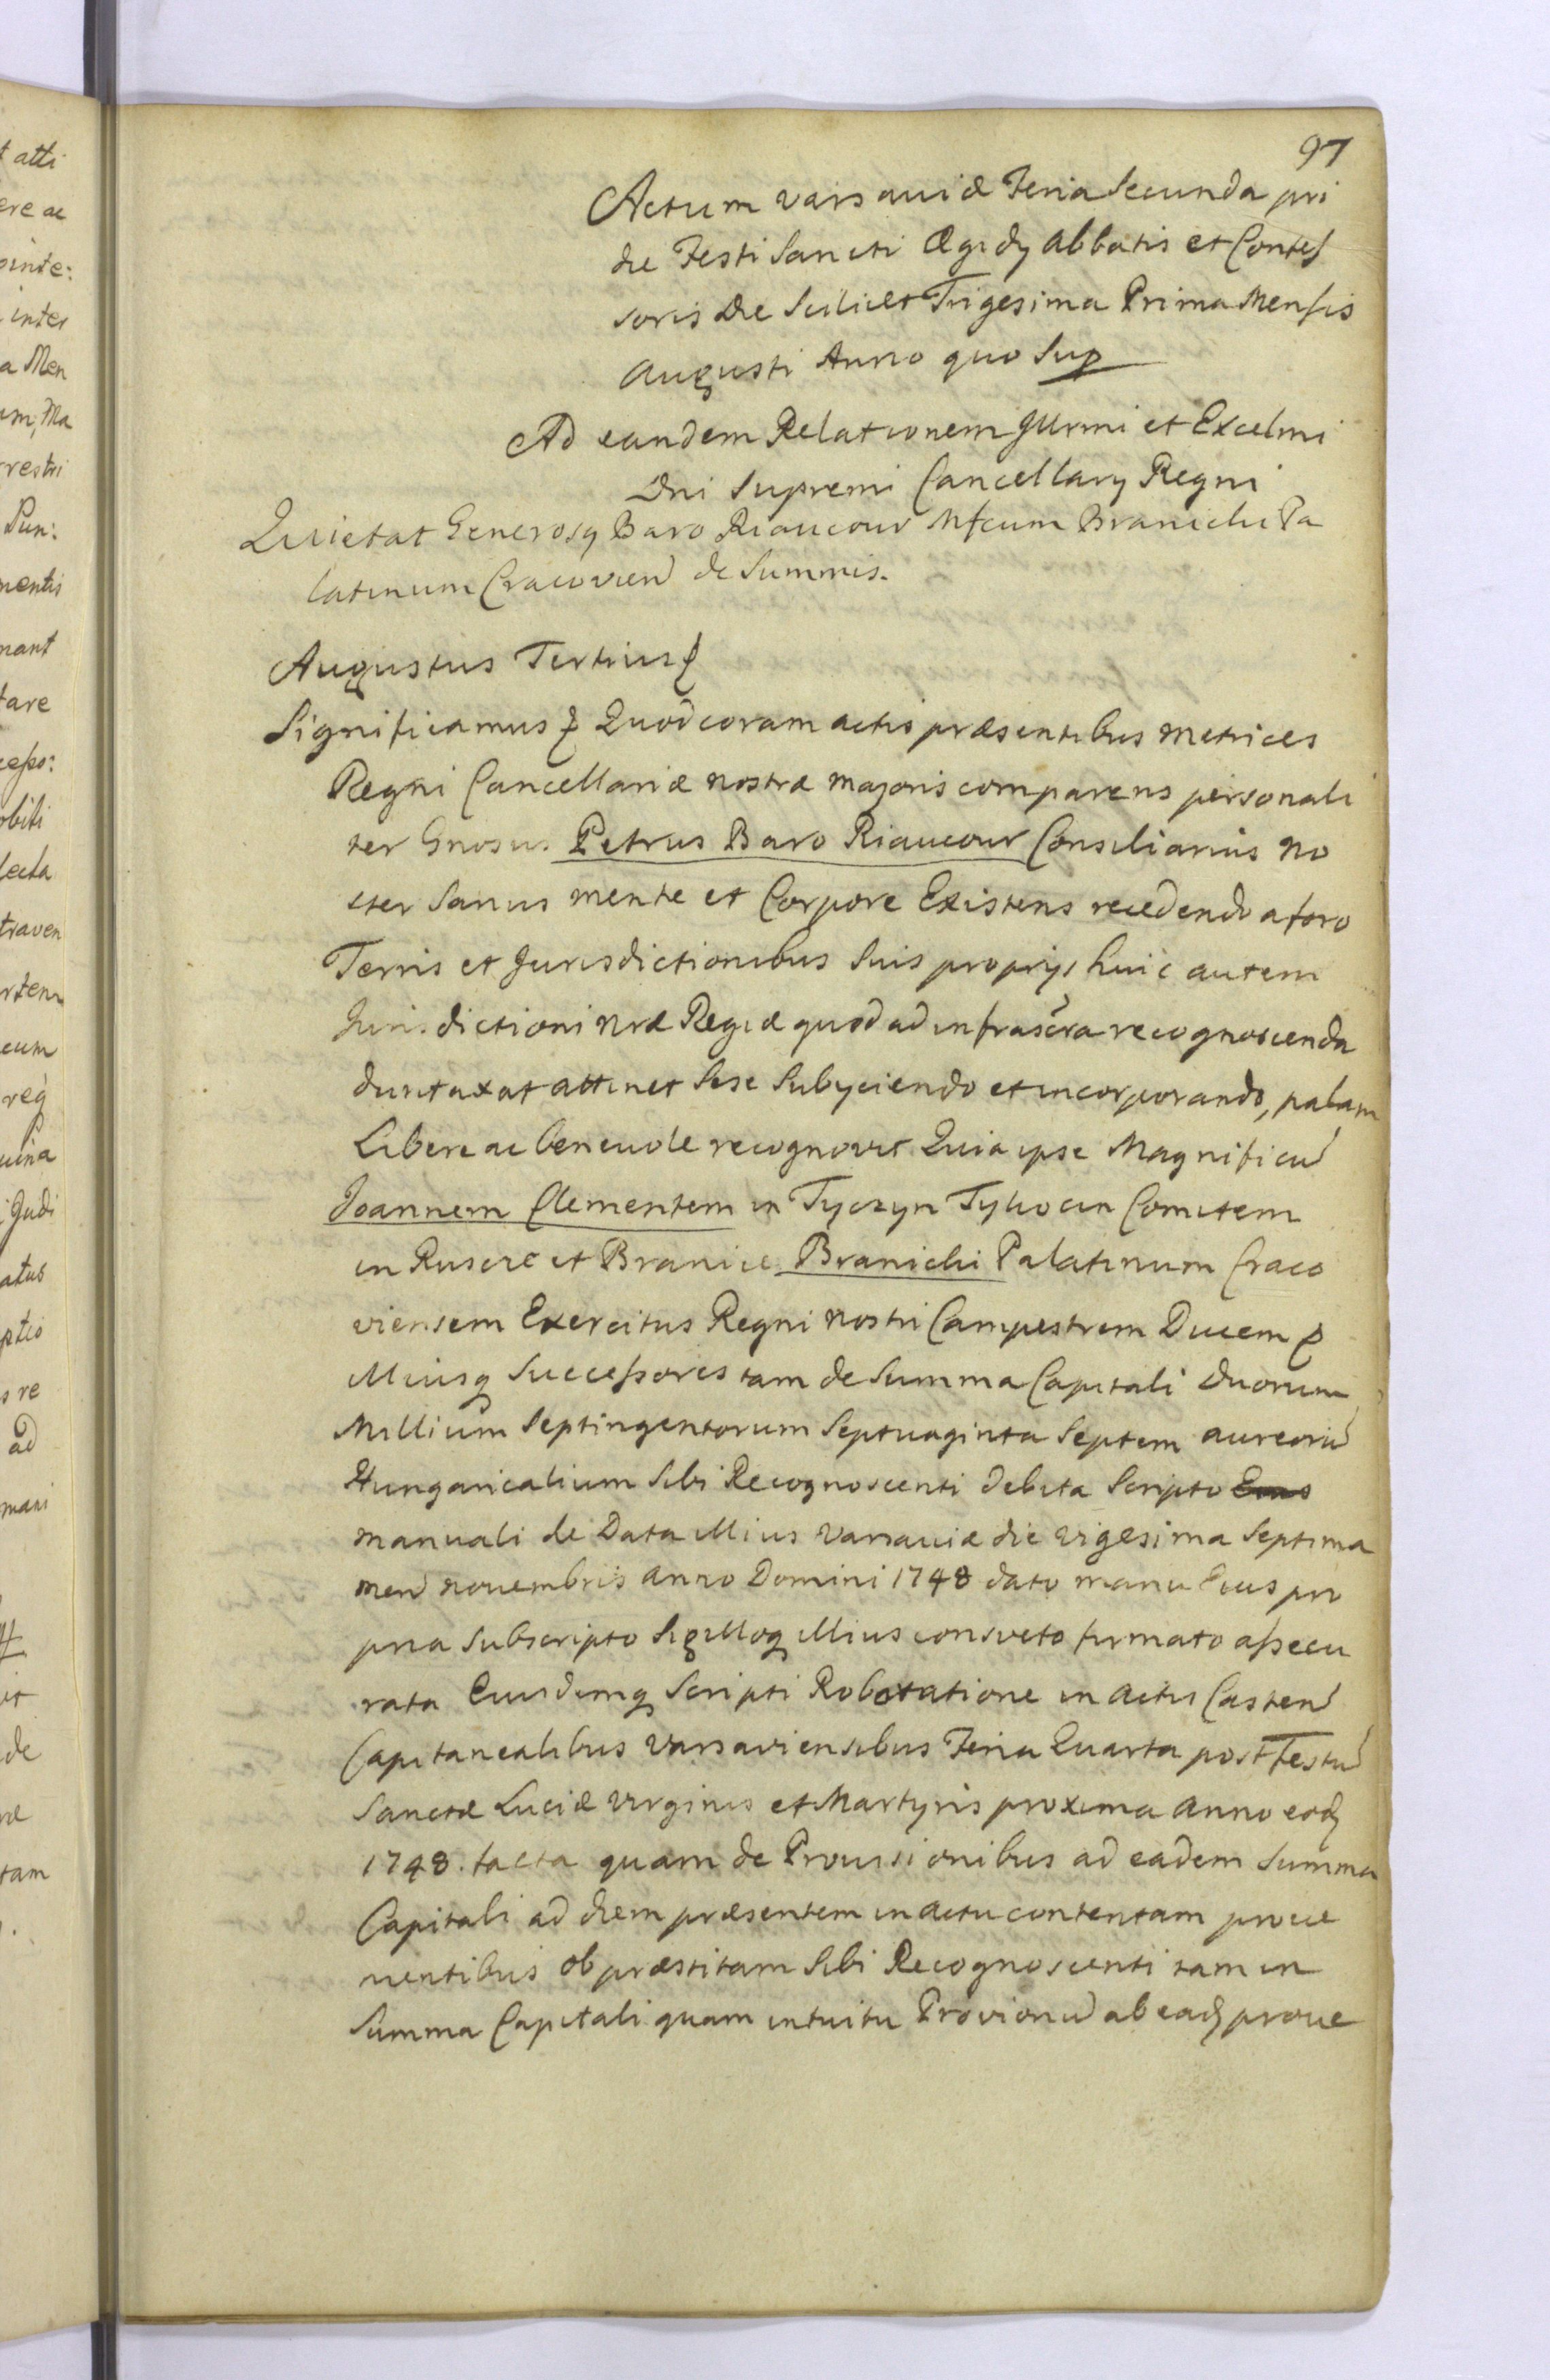 97
Actum Varsaviæ Feria Secunda pri
die Festi Sancti Ægidÿ Abbatis et Confes
soris Die Scilicet Trigesima Prima Mensis
Augusti Anno quo Sup
Ad eandem Relationem Jllrmi et Excelmi
Dni Supremi Cancellarÿ Regni
Quietat Generosq Baro Riaucour Mfcum Branicki Pa
latinum Cracovien de Summis.
Augustus Tertius
Significamus Quod coram actis præsentibus Metrices
Regni Cancellariæ nostræ majoris comparens personali
ter Gnosus Petrus Baro Riaucour Consiliarius No
ster Sanus mente et Corpore Existens recedendo a foro
Terris et Jurisdictionibus Suis proprÿs huic autem
Jurisdictioni nræ Regiæ quod ad infrascra recognoscenda
duntaxat attinet Sese Subÿciendo et incorporando, palam
Libere ac benevole recognovit Quia ipse Magnificu
Joannem Clementem in Tyczyn Tykocin Comitem
in Ruscze et Branice Branicki Palatinum Craco
viensem Exercitus Regni nostri Campestrem Ducem
Illiusq Successores tam de Summa Capitali Duorum
Millium Septingentorum Septuaginta Septem aureoru
Hungaricalium Sibi Recognoscenti debita Scripto
manuali de Data Illius Varsaviæ die vigesima Septima
men novembris Anno Domini 1748 dato manu Eius pro
pria Subscripto Sigilloq Illius consveto firmato assecu
rata Eiusdemq Scripti Roboratione in actis Casten
Capitanealibus Varsaviensibus Feria Quarta post Festu
Sanctæ Luciæ Virginis et Martyris proxima Anno eod
1748. facta quam de Provisionibus ad eadem Summa
Capitali ad diem præsentem in actu contentam prove
nientibus ob præstitam Sibi Recognoscenti tam in
Summa Capitali quam intuitu Provionu ab ead prove